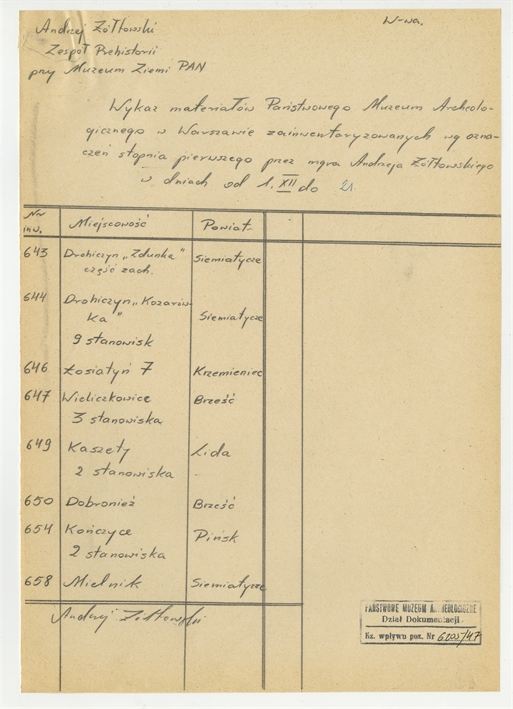 Andrzej Żółtowski
W-wa.
Zespół Prehistorii
przy Muzeum Ziemi PAN
Wykaz materiałów Państwowego Muzeum Archeolo-
gicznego w Warszawie zainwentaryzowanych wg ozna-
czeń stopnia pierwszego przez mgra Andrzeja Żółtowskiego
w dniach od 1. XII do 21
Nr inw. Miejscowość Powiat
643 Drohiczyn „Zdunka" Siemiatycze
część zach.
644 Drohiczyn „Kozarów-
ka" Siemiatycze
9 stanowisk
646 Łosiatyń 7 Krzemieniec
647 Wieliczkowice Brześć
3 stanowiska
649 Kaszety Lida
2 stanowiska
650 Dobronież Brześć
654 Kończyce Pińsk
2 stanowiska
658 Mielnik Siemiatycze
Andrzej Żółtowski
PAŃSTWOWE MUZEUM ARCHEOLOGICZNE
Dział Dokumentacji
Ks. wpływu poz. Nr